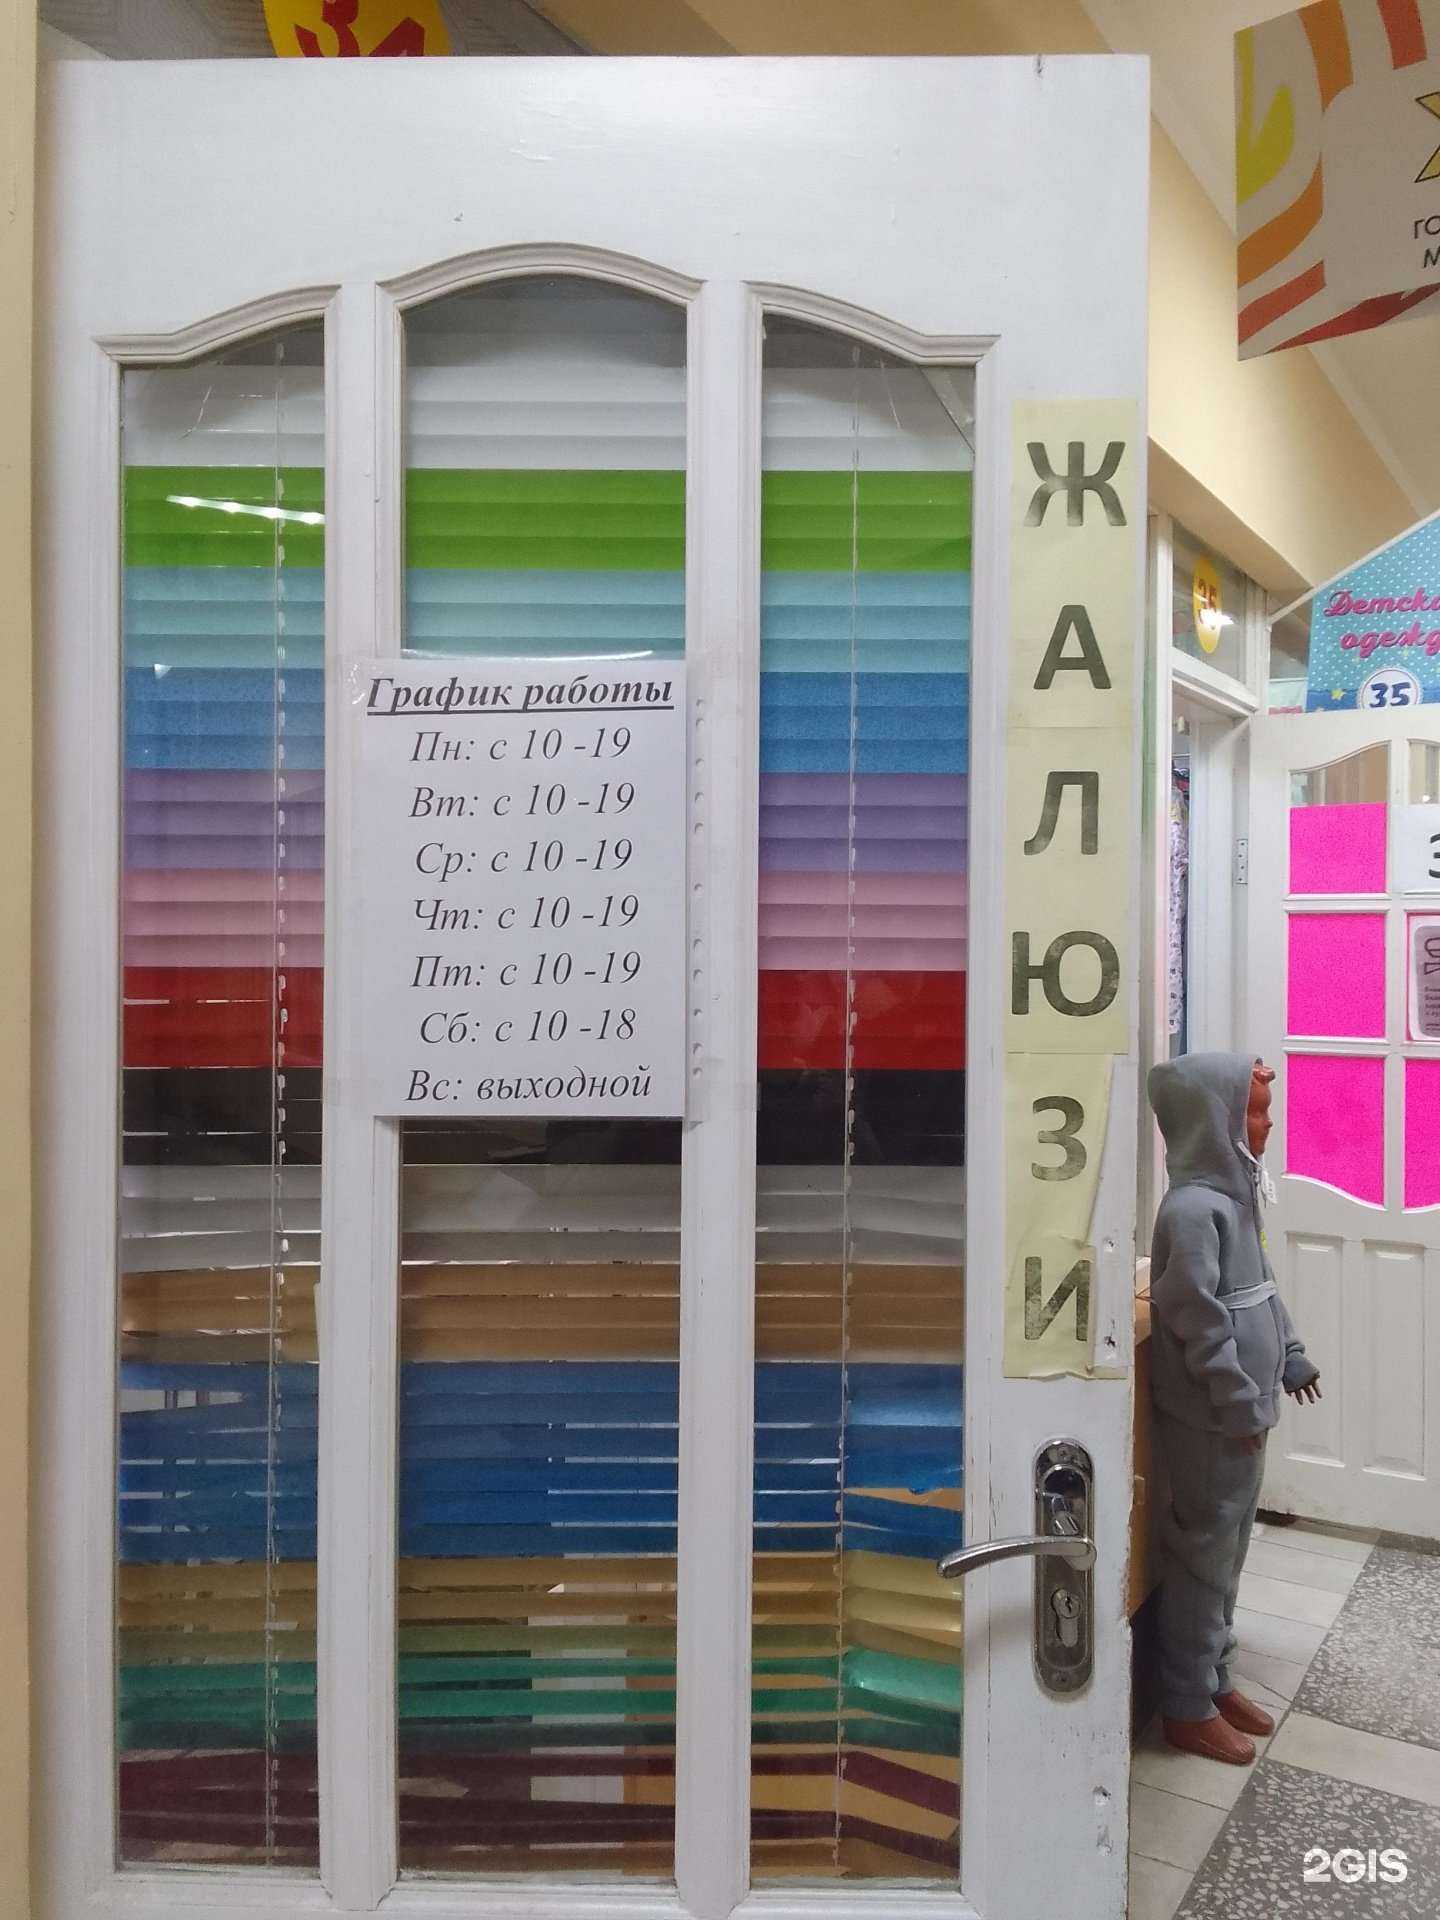 График работы
Пн: с 10 -19
Вт: с 10 -19
Ср: с 10 -19
Чт: с 10 -19
Пт: с 10 -19
Сб: с 10 -18
Вс: выходной
ЖАЛЮЗИ
35
35
2GIS